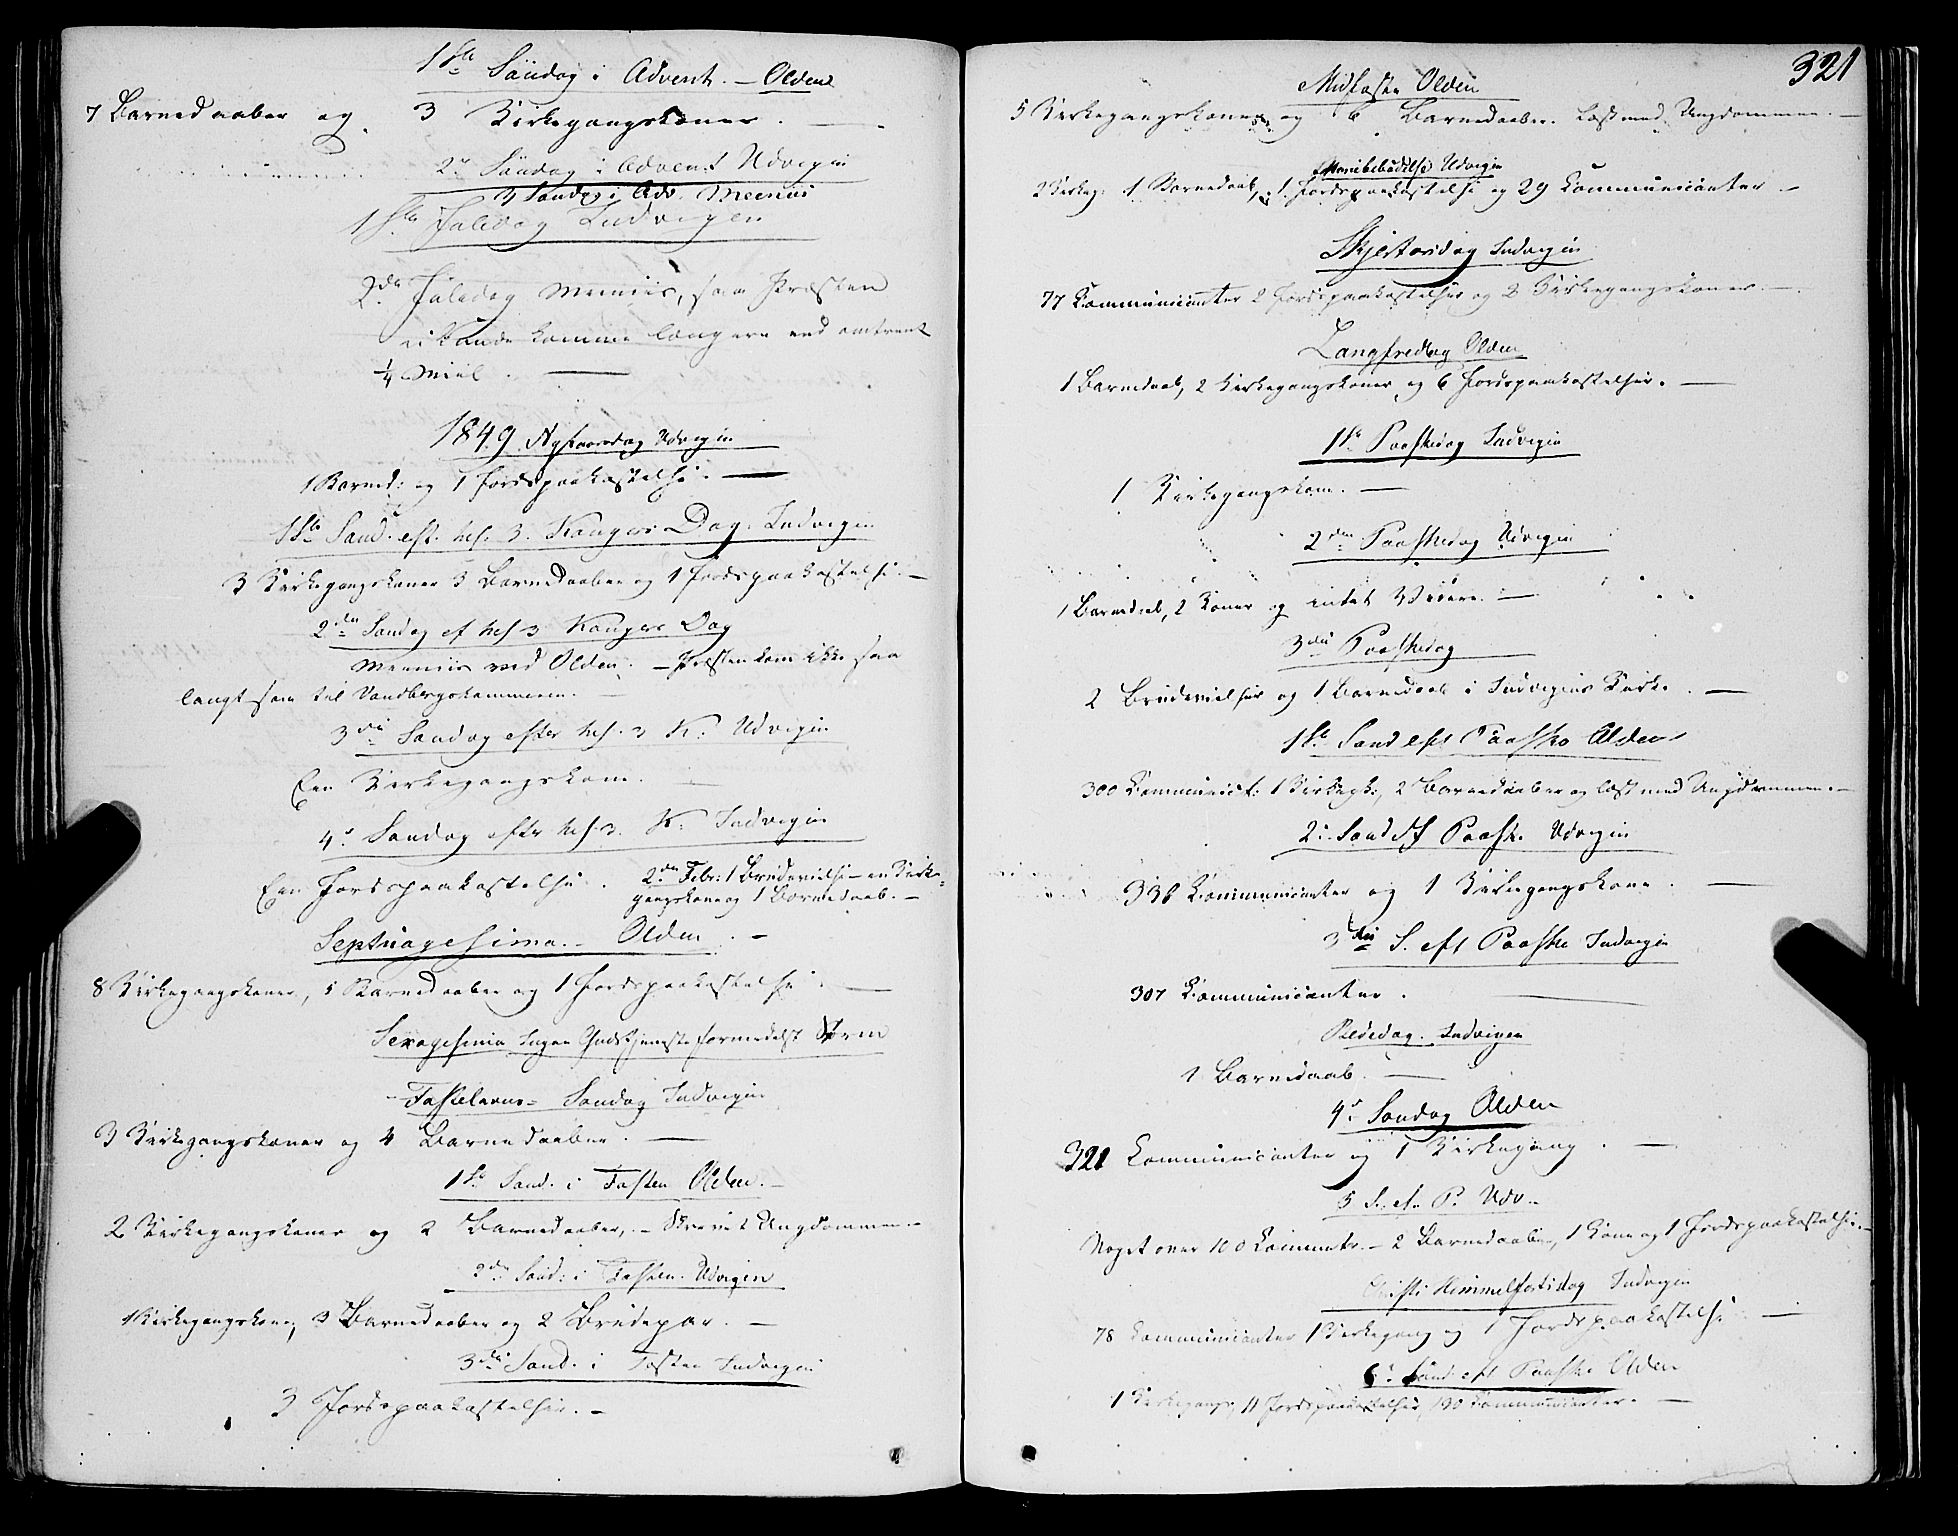 1ste Söndag i Advent. – Olden
7 Barnedaaber og 3 Kirkegangskoner. –
2n Söndag i Advent Udvigen
3 Søndag i Adv. Meeniis
1ste Juledag Indvigen
2den Juledag Meeniis, saa Præsten
ei kunde komme længere end omtrent
1/4 Miil. –
1849. Nytaarsdag Udvigen
1 Barned: og 1 Jordspaakastelse. –
1ste Sønd. eft. hel. 3 Kongers Dag. Indvigen
3 Kirkegangskoner 3 Barnedaaber og 1 Jordspaakastelse. –
2den Søndag ef hel 3 Kongers Dag
Meeniis ved Olden. – Præsten kom ikke saa
langt som til Vandbergskammeren. –
3die Søndag efter hel. 3 K. Udvigen
Een Kirkegangskone. –
4de Søndag efter hel. 3. K. Indvigen
Een Jordspaakastelse. 2den Febr: 1 Brudevielse – en Kirke-
gangskone og 1 Barnedaab. –
Septuagesima. – Olden. –
8 Kirkegangskoner, 5 Barnedaaber og 1 Jordspaakastelse. –
Sexagesima Ingen Gudstjeneste formedelst Storm
Fastelavns- Søndag Indvigen
3 Kirkegangskoner og 4 Barnedaaber. –
1ste Sønd. i Fasten Olden. –
2 Kirkegangskoner og 2 Barnedaaber, – Ungdommen. –
2den Sønd: i Fasten. Udvigen
1 Kirkegangskone, 3 Barnedaaber og 2 Brudepar. –
3die Sønd. i Fasten Indvigen
3 Jordspaakastelser. –
321
Midfaste Olden
5 Kirkegangskoner og 6 Barnedaaber. Læst med Ungdommen. –
Mariæbebudelse Udvigen
2 Kirkeg: 1 Barnedaab, 1 Jordspaakastelse og 29 Communicanter –
Skjertorsdag Indvigen
77 Communicanter 2 Jordspaakastelser og 2 Kirkegangskoner. –
Langfredag Olden
1 Barnedaab, 2 Kirkegangskoner og 6 Jordspaakastelser. –
1ste Paaskedag Indvigen
1 Kirkegangskone. –
2den Paaskedag Udvigen
1 Barnedaab, 2 Koner og intet Videre. –
3die Paaskedag
2 Brudevielser og 1 Barnedaab i Indvigens Kirke. –
1ste Sønd eft Paaske Olden
300 Communict: 1 Kirkegk:, 2 Barnedaaber og læst med Ungdommen. –
2. Sønd eft Paask. Udvigen
336 Communicanter og 1 Kirkegangskone. –
3die S. eft Paaske Indvigen
307 Communicanter. –
Bededag. Indvigen
1 Barnedaab. –
4de Søndag Olden
321 Communicanter og 1 Kirkegang. –
5 S. ef. P. Udv. –
Noget over 100 Communtr. – 2 Barnedaaber, 1 Kone og 1 Jordspaakastelse. –
Christi Himmelfartsdag Indvigen
78 Communicanter 1 Kirkegang og 1 Jordspaakastelse. –
6. Sønd eft Paaske Olden
1 Kirkegang, 11 Jordspaakastelser, 190 Communicanter. –